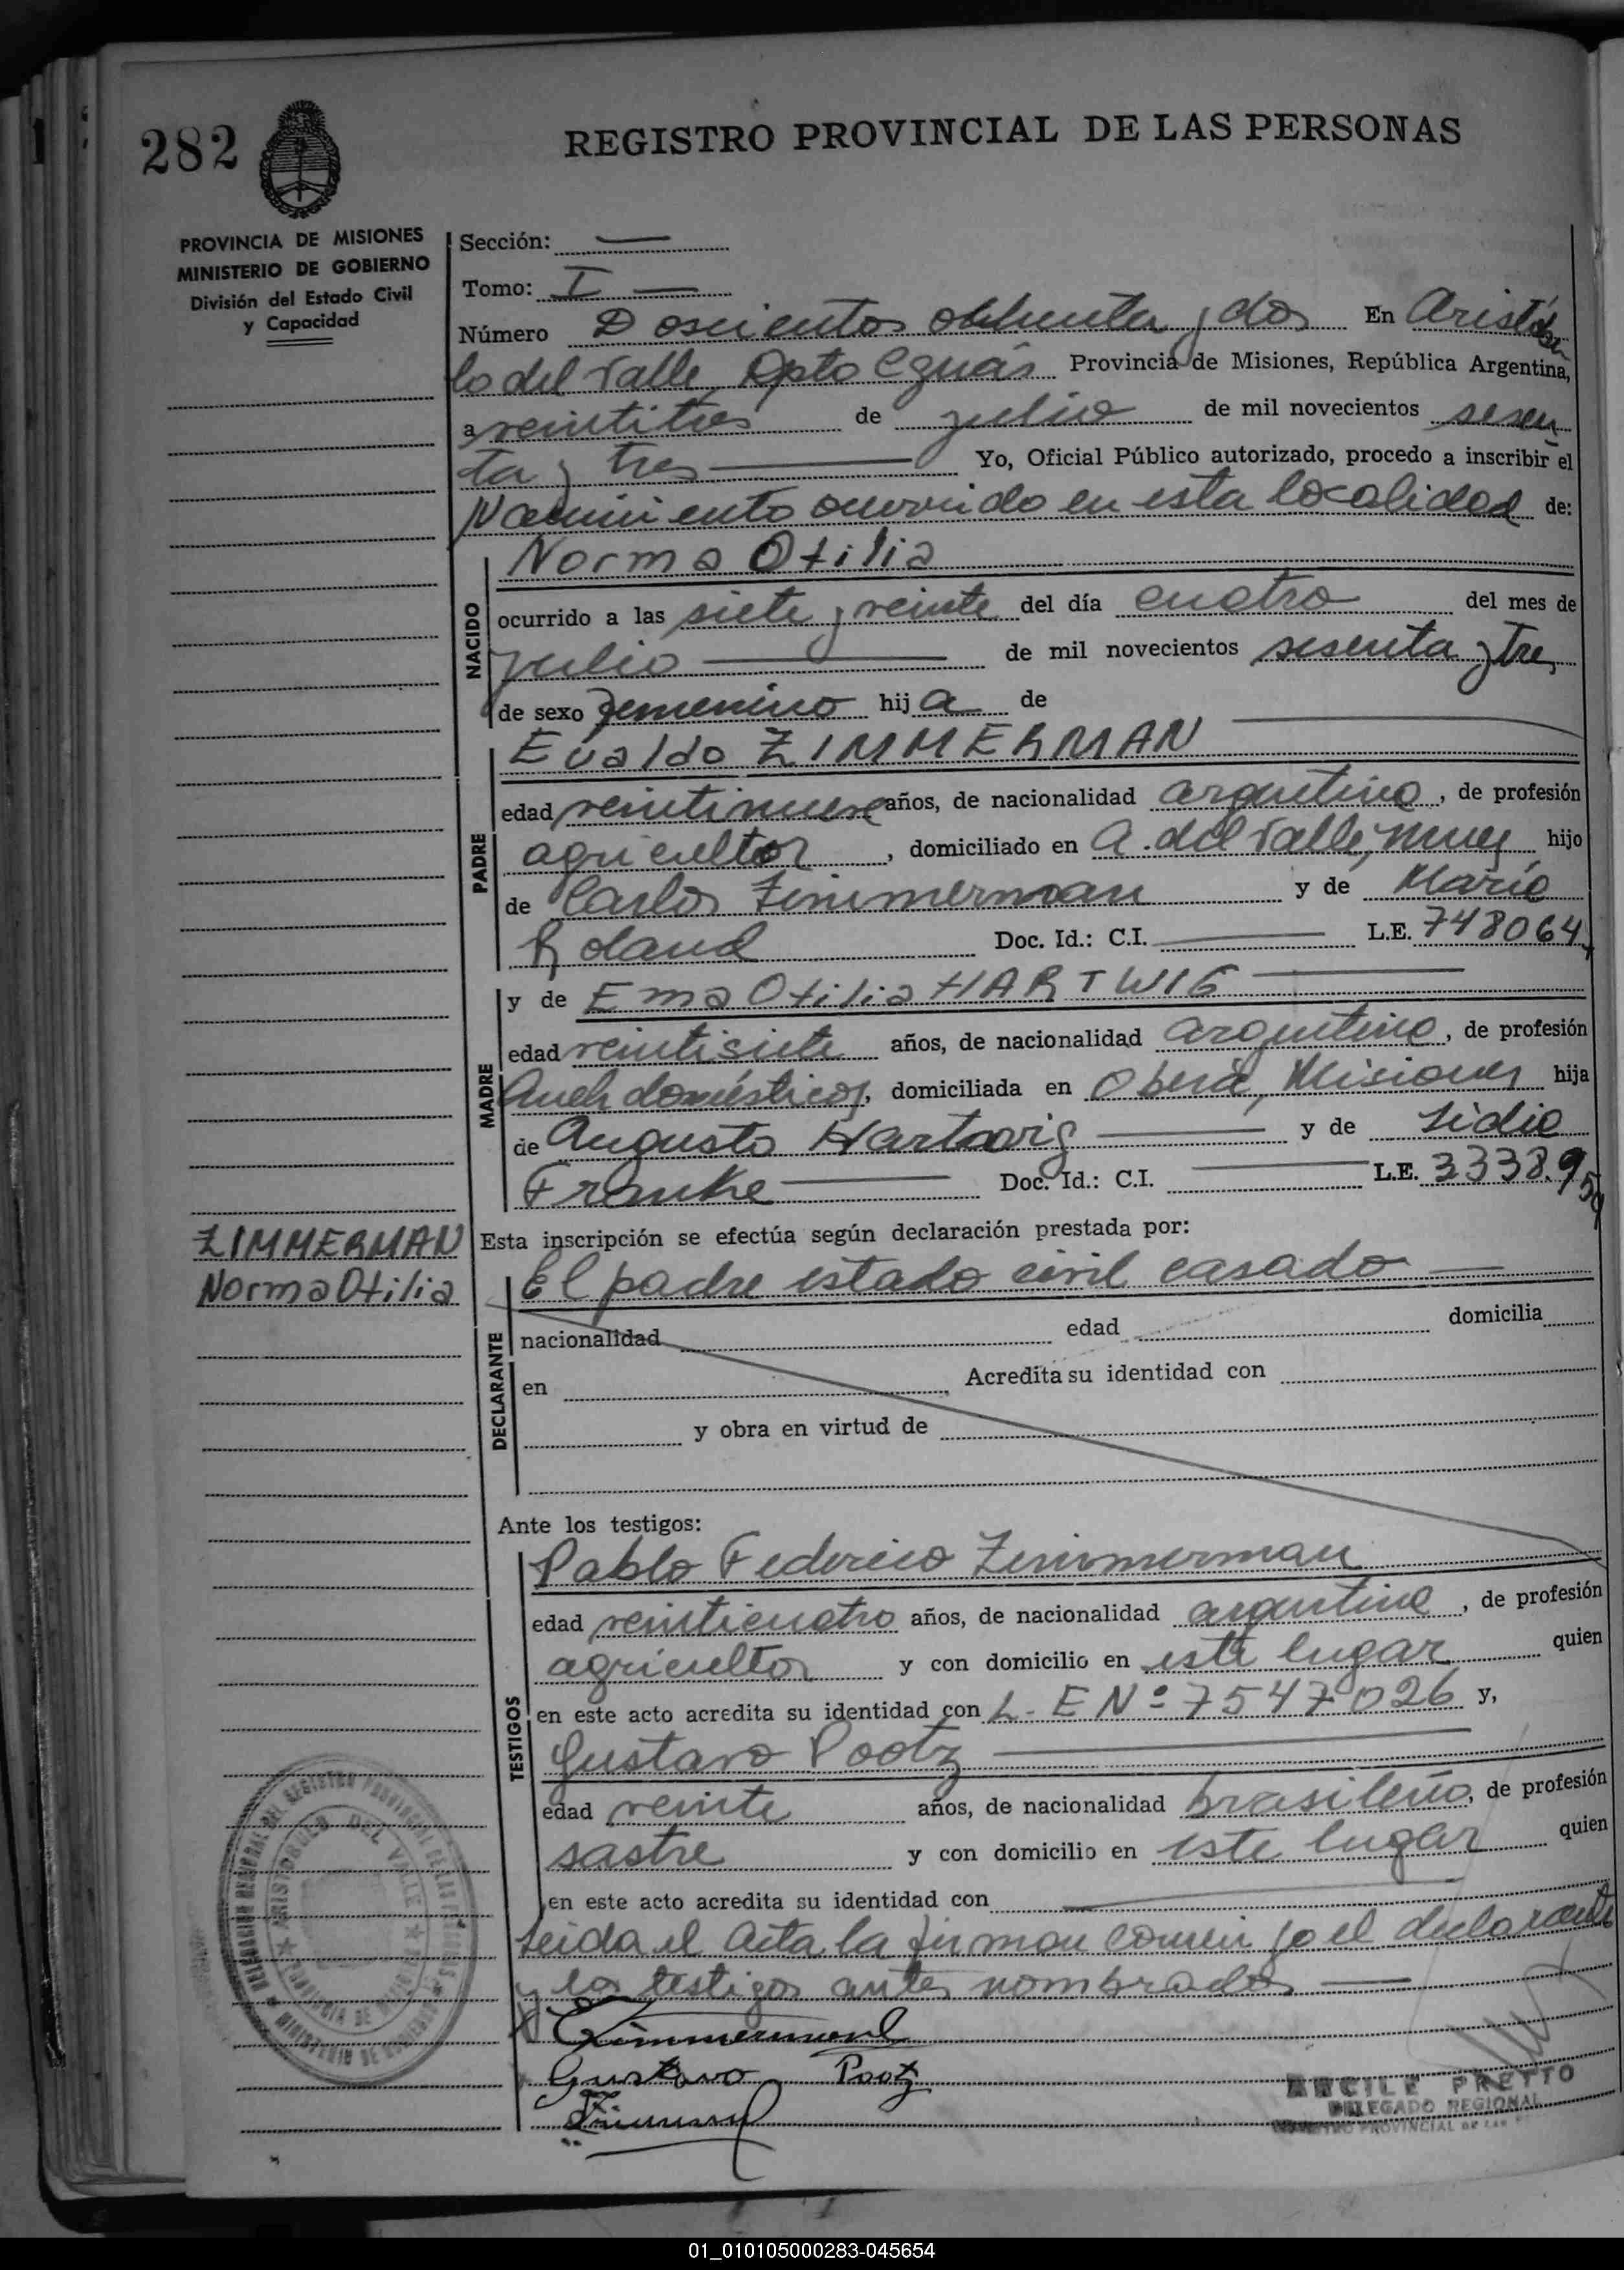 282
REGISTRO PROVINCIAL DE LAS PERSONAS
PROVINCIA DE MISIONES
MINISTERIO DE GOBIERNO
División del Estado Civil
y Capacidad
Sección: —
Tomo: I —
Número Doscientos ochenta y dos En Aristóbu
lo del Valle, Dpto Cguás Provincia de Misiones, República Argentina,
a veintitres de julio de mil novecientos sesen
ta y tres — Yo, Oficial Público autorizado, procedo a inscribir el
Nacimiento ocurrido en esta localidad de:
NACIDO
Norma Otilia
ocurrido a las siete y veinte del día cuatro del mes de
julio — de mil novecientos sesenta y tres
de sexo femenino hija de
PADRE
Evaldo ZIMMERMAN —
edad veintinueve años, de nacionalidad argentino, de profesión
agricultor, domiciliado en A. del Valle, mnes hijo
de Carlos Zimmerman y de María
Roland Doc. Id.: C.I. — L.E. 748064
MADRE
y de Ema Otilia HARTWIG —
edad veintisiete años, de nacionalidad argentina, de profesión
Queh domésticos, domiciliada en Oberá, Misiones hija
de Augusto Hartwig — y de Lidia
Franke — Doc. Id.: C.I. — L.E. 3338.959
ZIMMERMAN
Norma Otilia
Esta inscripción se efectúa según declaración prestada por:
DECLARANTE
El padre estado civil casado —
nacionalidad edad domicilia
en , Acredita su identidad con
y obra en virtud de
Ante los testigos:
TESTIGOS
Pablo Federico Zimmerman
edad veinticuatro años, de nacionalidad argentina, de profesión
agricultor y con domicilio en este lugar quien
en este acto acredita su identidad con L. E Nº 7547026 y,
Gustavo Pootz —
edad veinte años, de nacionalidad brasileño, de profesión
sastre y con domicilio en este lugar quien
en este acto acredita su identidad con —
Leida el Acta la firman conmigo el declarante
y los testigos antes nombrados —
Zimmermann
Gustavo Pootz
ARISTOBULO DEL VALLE
MINISTERIO DE GOBIERNO
PRETTO
DELEGADO REGIONAL
REGISTRO PROVINCIAL DE LAS
01_010105000283-045654